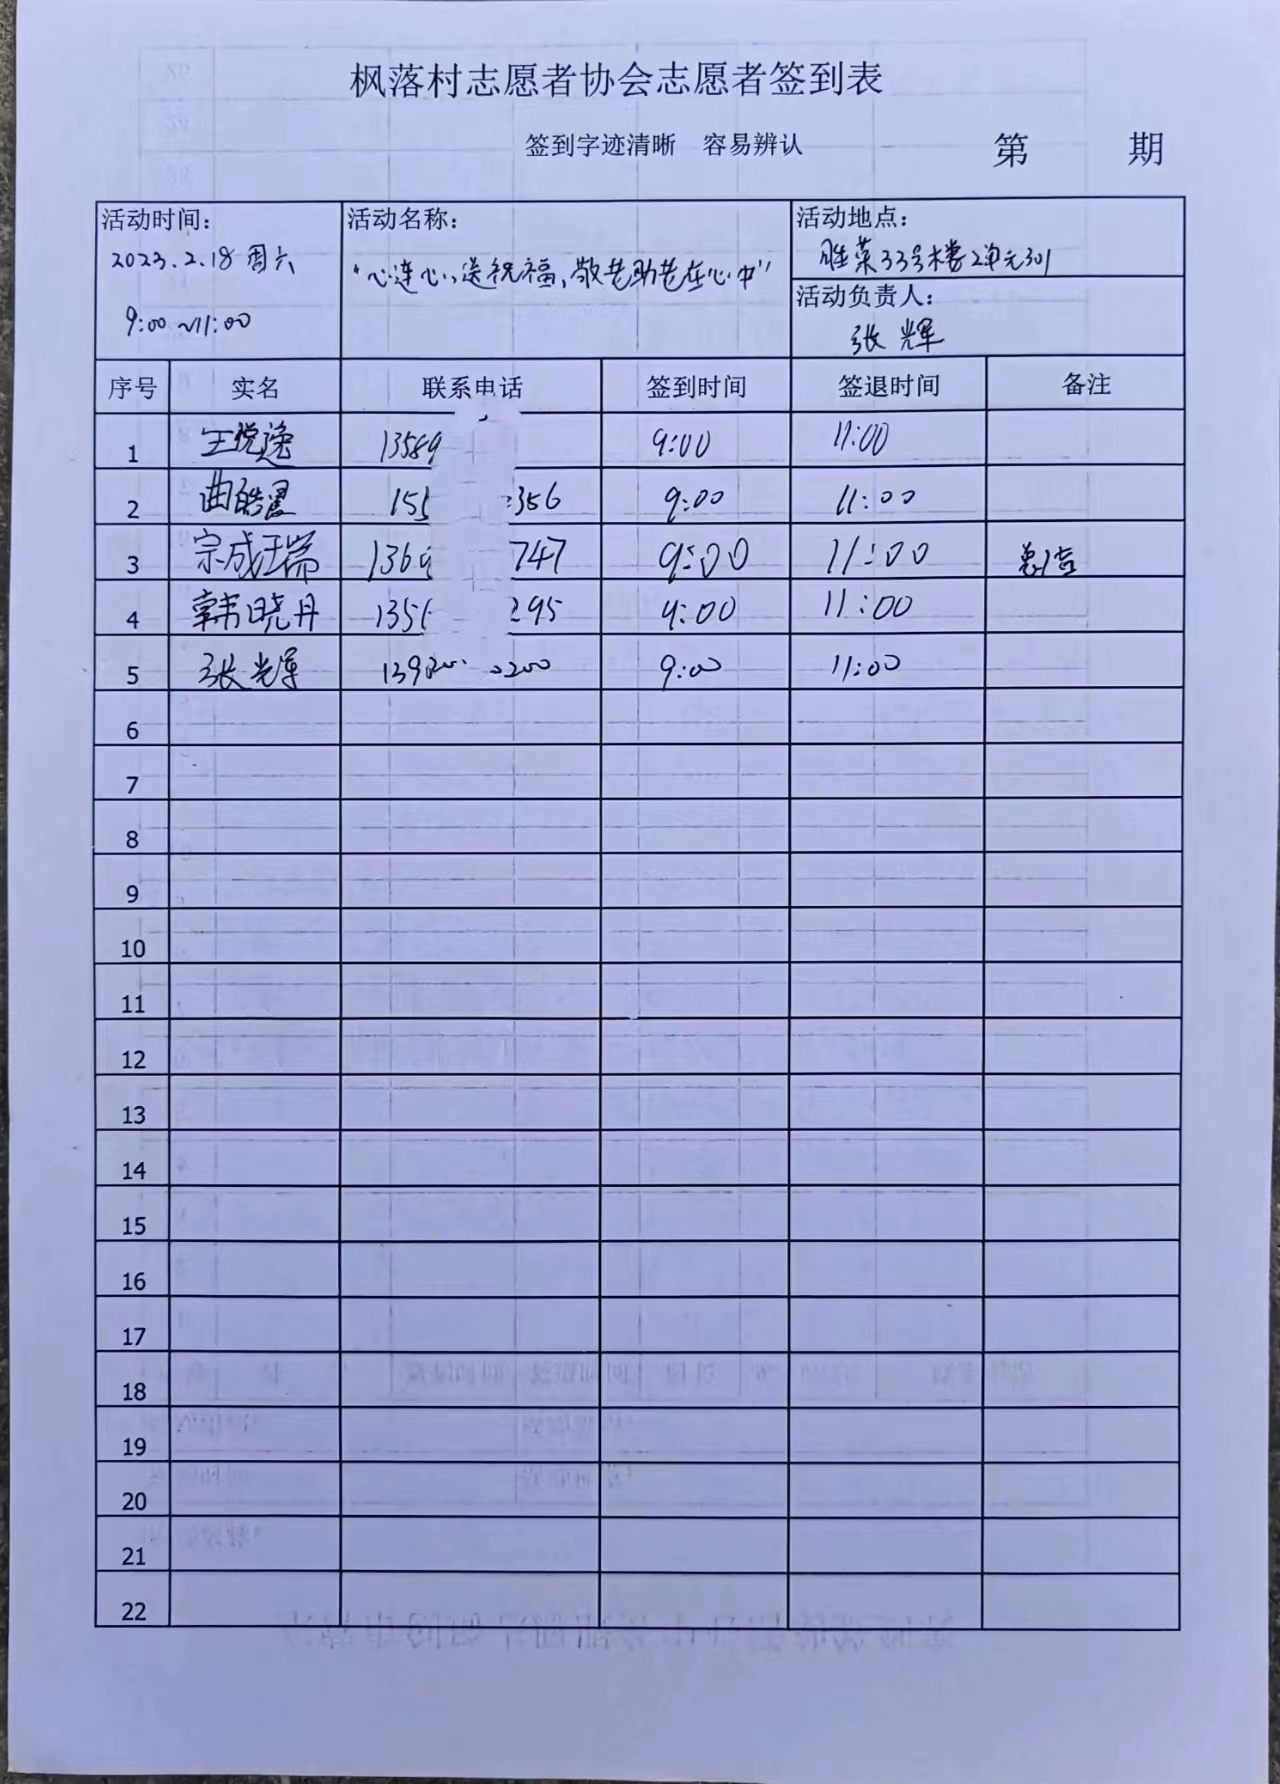 枫落村志愿者协会志愿者签到表
签到字迹清晰 容易辨认
第 期
活动时间：
2023.2.18 周六
9:00~11:00
活动名称：
“心连心，送祝福，敬老助老在心中”
活动地点：
胜菜33号楼2单元301
活动负责人：
张辉
序号 实名 联系电话 签到时间 签退时间 备注
1 王悦逸 13589 9:00 11:00
2 曲皓 155 356 9:00 11:00
3 宗成瑞 136 747 9:00 11:00
4 韩晓丹 1356 295 9:00 11:00
5 张辉 139 0200 9:00 11:00
6
7
8
9
10
11
12
13
14
15
16
17
18
19
20
21
22